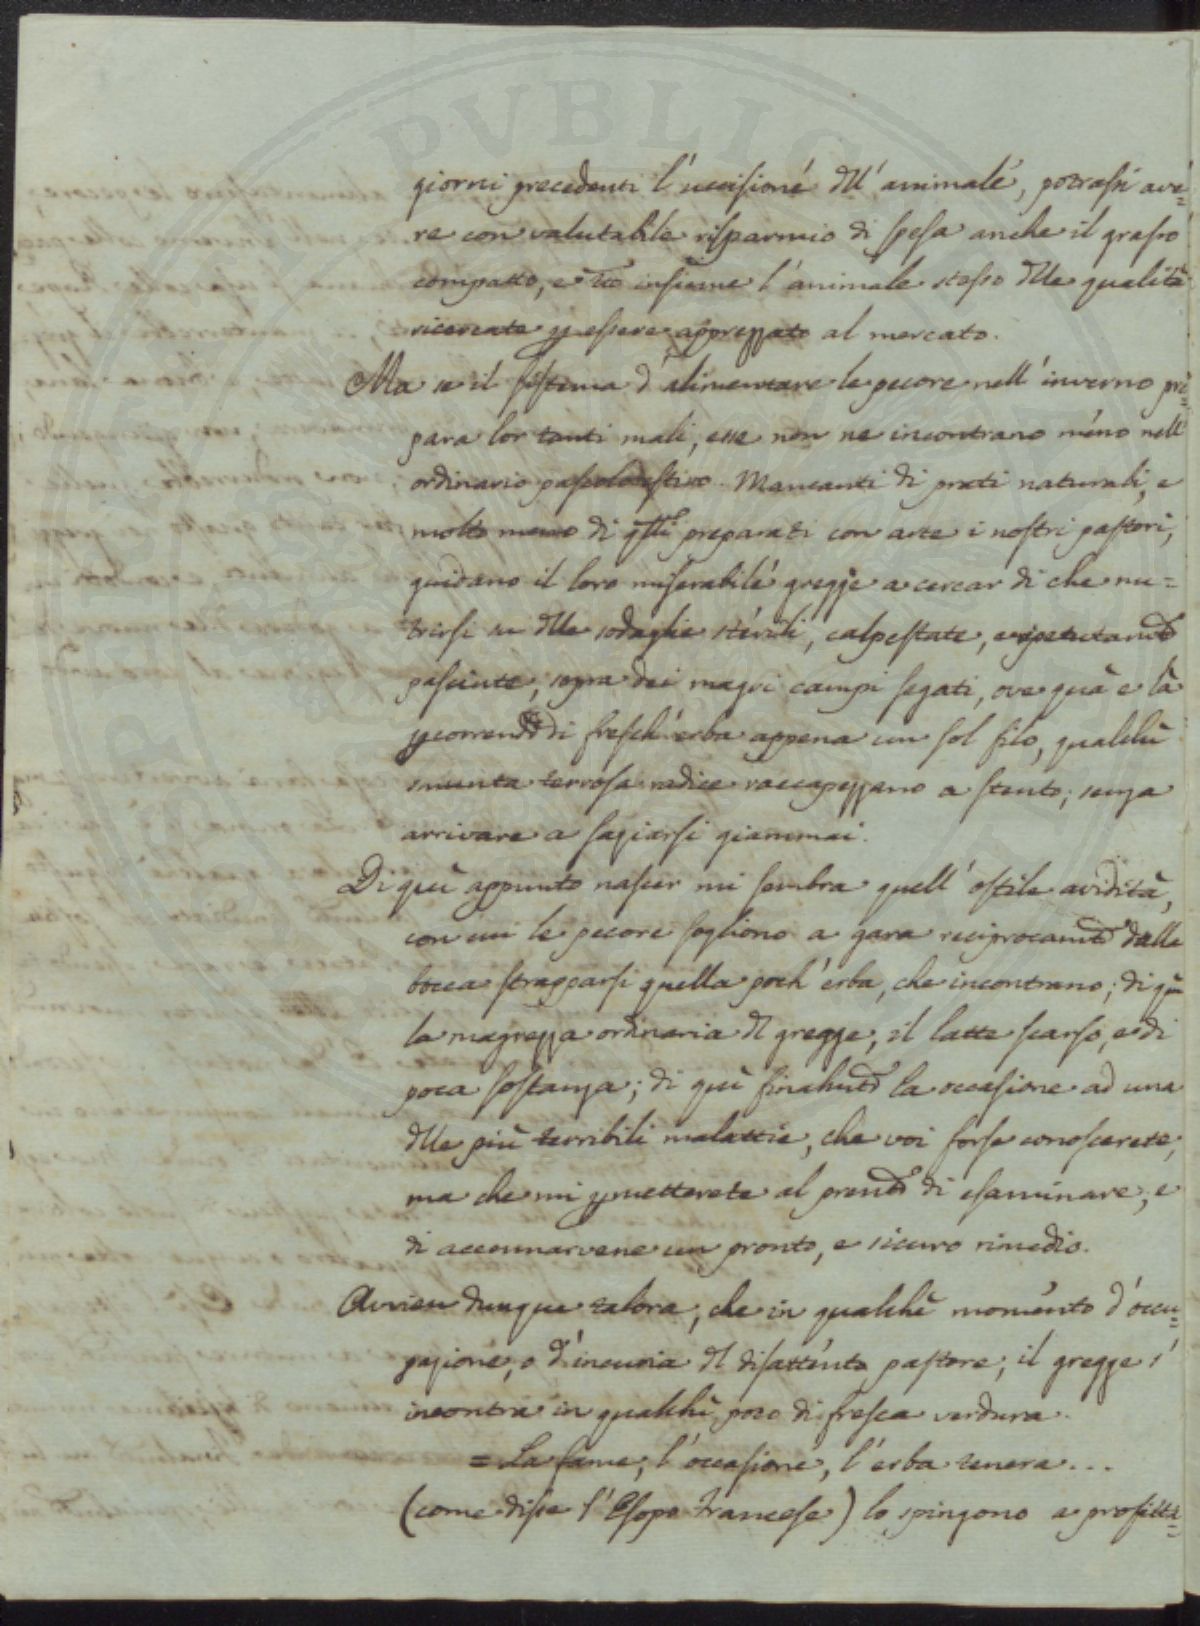 PVBLIC
giorni precedenti l'uccisione dll'animale, potrassi ave=
re con valutabile risparmio di spesa anche il grasso
compatto, e tto insieme l'animale stesso dlle qualità
ricercate p essere apprezzato al mercato.
Ma se il sistema d'alimentare le pecore nell'inverno pre=
para lor tanti mali, esse non ne incontrano meno nell'
ordinario pascolo estivo. Mancanti di prati naturali, e
molto meno di qlli preparati con arte i nostri pastori,
guidano il loro miserabile gregge a cercar di che nu=
trirsi su dlle sodaglie sterili, calpestate, e ripetutamte
pasciute, sopra dei magri campi segati, ove quà e là
pcorrendo di fresch'erba appena un sol filo, qualchè
smunta terrosa radice raccapezzano a stento; senza
arrivare a saziarsi giammai.
Di quì appunto nascer mi sembra quell'ostile avidità,
con cui le pecore sogliono a gara reciprocamte dalla
bocca strapparsi quella poch'erba, che incontrano; di quì
la magrezza ordinaria dl gregge, il latte scarso, e di
poca sostanza; di quì finalmte la occasione ad una
dlle più terribili malattie, che voi forse conoscerete,
ma che mi pmetterete al presente di esaminare, e
di accennarvene un pronto, e sicuro rimedio.
Avvien dunque talora, che in qualchè momento d'occu=
pazione, o d'incuria dl disattento pastore, il gregge s'
incontra in qualchè poco di fresca verdura.
= La fame, l'occasione, l'erba tenera...
(come disse l'Esopo Francese) lo spingono a profitta=